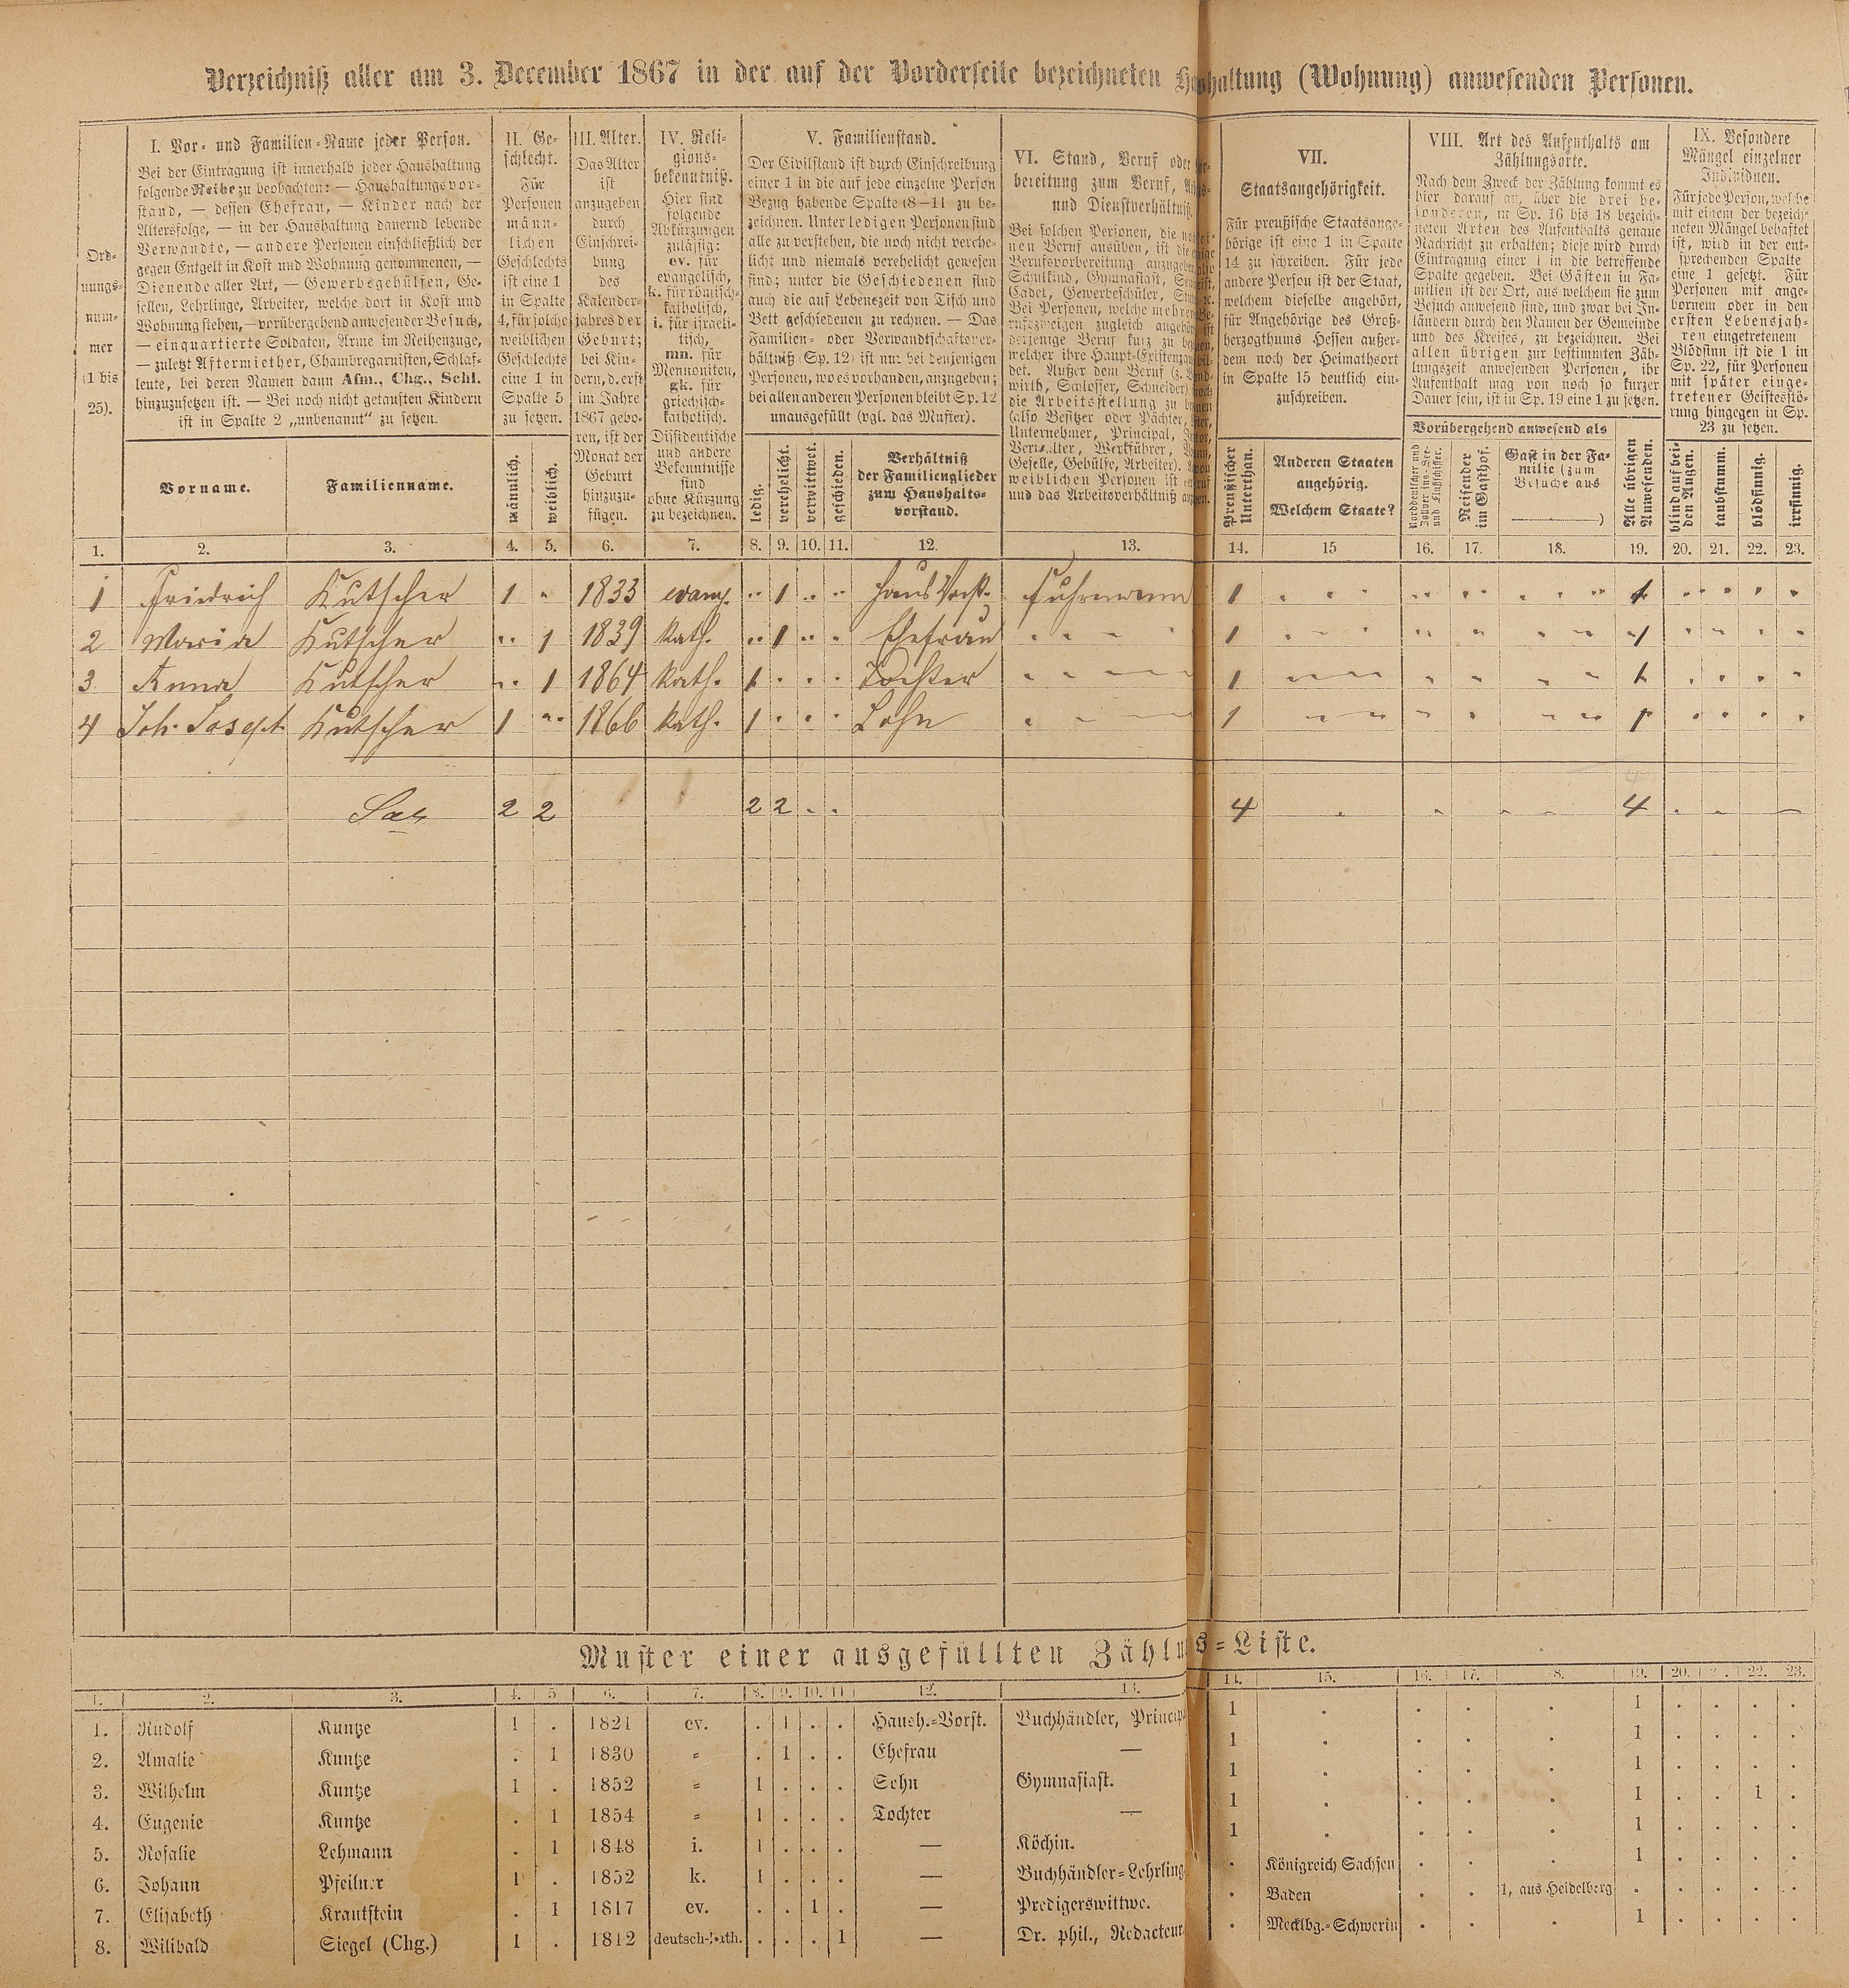 Verzeichniß aller am 3. December 1867 in der auf der Vorderseite bezeichneten Haushaltung (Wohnung) anwesenden Personen.
Ord-
nungs-
num-
mer
(1 bis
25).
I. Vor- und Familien-Name jeder Person.
Bei der Eintragung ist innerhalb jeder Haushaltung
folgende Reihe zu beobachten: — Haushaltungsvor-
stand, — dessen Ehefrau, — Kinder nach der
Altersfolge, — in der Haushaltung dauernd lebende
Verwandte, — andere Personen einschließlich der
gegen Entgelt in Kost und Wohnung genommenen, —
Dienende aller Art, — Gewerbsgehülfen, Ge-
sellen, Lehrlinge, Arbeiter, welche dort in Kost und
Wohnung stehen, — vorübergehend anwesender Besuch,
— einquartierte Soldaten, Arme im Reihenzuge,
— zuletzt Aftermiether, Chambregarnisten, Schlaf-
leute, bei deren Namen dann Afm., Chg., Schl.
hinzuzusetzen ist. — Bei noch nicht getauften Kindern
ist in Spalte 2 „unbenannt“ zu setzen.
Vorname.
Familienname.
II. Ge-
schlecht.
Für
Personen
männ-
lichen
Geschlechts
ist eine 1
in Spalte
4, für solche
weiblichen
Geschlechts
eine 1 in
Spalte 5
zu setzen.
männlich.
weiblich.
III. Alter.
Das Alter
ist
anzugeben
durch
Einschrei-
bung
des
Kalender-
jahres der
Geburt;
bei Kin-
dern, d. erst
im Jahre
1867 gebo-
ren, ist der
Monat der
Geburt
hinzuzu-
fügen.
IV. Reli-
gions-
bekenntniß.
Hier sind
folgende
Abkürzungen
zulässig:
ev. für
evangelisch,
k. für römisch-
katholisch,
i. für israeli-
tisch,
mn. für
Mennoniten,
gk. für
griechisch-
katholisch.
Dissidentische
und andere
Bekenntnisse
sind
ohne Kürzung
zu bezeichnen.
V. Familienstand.
Der Civilstand ist durch Einschreibung
einer 1 in die auf jede einzelne Person
Bezug habende Spalte (8—11 zu be-
zeichnen. Unter ledigen Personen sind
alle zu verstehen, die noch nicht verehe-
licht und niemals verehelicht gewesen
sind; unter die Geschiedenen sind
auch die auf Lebenszeit von Tisch und
Bett geschiedenen zu rechnen. — Das
Familien- oder Verwandtschaftsver-
hältniß (Sp. 12) ist nur bei denjenigen
Personen, wo es vorhanden, anzugeben;
bei allen anderen Personen bleibt Sp. 12
unausgefüllt (vgl. das Muster).
ledig.
verehelicht.
verwittwet.
geschieden.
Verhältniß
der Familienglieder
zum Haushalts-
vorstand.
VI. Stand, Beruf oder
bereitung zum Beruf,
und Dienstverhältniß.
Bei solchen Personen, die
nen Beruf ausüben, ist die
Berufsvorbereitung anzugeben
Schulkind, Gymnasiast,
Cadet, Gewerbeschüler,
Bei Personen, welche mehreren
rufszweigen zugleich angehören
derjenige Beruf kurz zu
welcher ihre Haupt-Existenz
det. Außer dem Beruf (z.
wirth, Schlosser, Schneider)
die Arbeitsstellung zu
(also Besitzer oder Pächter,
Unternehmer, Principal,
Verwalter, Werkführer,
Geselle, Gehülfe, Arbeiter).
weiblichen Personen ist
und das Arbeitsverhältniß
VII.
Staatsangehörigkeit.
Für preußische Staatsange-
hörige ist eine 1 in Spalte
14 zu schreiben. Für jede
andere Person ist der Staat,
welchem dieselbe angehört,
für Angehörige des Groß-
herzogthums Hessen außer-
dem noch der Heimathsort
in Spalte 15 deutlich ein-
zuschreiben.
Preußischer
Unterthan.
Anderen Staaten
angehörig.
Welchem Staate?
VIII. Art des Aufenthalts am
Zählungsorte.
Nach dem Zweck der Zählung kommt es
hier darauf an, über die drei be-
sonderen, in Sp. 16 bis 18 bezeich-
neten Arten des Aufenthalts genaue
Nachricht zu erhalten; diese wird durch
Eintragung einer 1 in die betreffende
Spalte gegeben. Bei Gästen in Fa-
milien ist der Ort, aus welchem sie zum
Besuch anwesend sind, und zwar bei In-
ländern durch den Namen der Gemeinde
und des Kreises, zu bezeichnen. Bei
allen übrigen zur bestimmten Zäh-
lungszeit anwesenden Personen, ihr
Aufenthalt mag von noch so kurzer
Dauer sein, ist in Sp. 19 eine 1 zu setzen.
Vorübergehend anwesend als
Reisender
im Gasthof.
Gast in der Fa-
milie (zum
Besuche aus
)
Alle übrigen
Anwesenden.
IX. Besondere
Mängel einzelner
Individuen.
Für jede Person, welche
mit einem der bezeich-
neten Mängel behaftet
ist, wird in der ent-
sprechenden Spalte
eine 1 gesetzt. Für
Personen mit ange-
bornem oder in den
ersten Lebensjah-
ren eingetretenem
Blödsinn ist die 1 in
Sp. 22, für Personen
mit später einge-
tretener Geistesstö-
rung hingegen in Sp.
23 zu setzen.
blind auf bei-
den Augen.
taubstumm.
blödsinnig.
irrsinnig.
1. 2. 3. 4. 5. 6. 7. 8. 9. 10. 11. 12. 13. 14. 15 16. 17. 18. 19. 20. 21. 22. 23.
1 Friedrich Kutscher 1 1833 evang. 1 HausVorst. Fuhrmann 1 1
2 Maria Kutscher 1 1839 Kath. 1 Ehefrau 1 1
3 Anna Kutscher 1 1864 Kath. 1 Tochter 1 1
4 Joh. Joseph Kutscher 1 1866 Kath. 1 Sohn 1 1
2 2 2 2 4 4
Muster einer ausgefüllten Zählungs-Liste.
1. 2. 3. 4. 5 6. 7. 8. 9. 10. 11 12. 13. 14. 15. 16. 17. 8. 19. 20. 22. 23.
1. Rudolf Kuntze 1 . 1821 ev. . 1 . . Haush.-Vorst. Buchhändler, Princip 1 . . . . 1 . . . .
2. Amalie Kuntze . 1 1830 " . 1 . . Ehefrau — 1 . . . . 1 . . . .
3. Wilhelm Kuntze 1 . 1852 " 1 . . . Sohn Gymnasiast. 1 . . . . 1 . . . .
4. Eugenie Kuntze . 1 1854 " 1 . . . Tochter — 1 . . . . 1 . . 1 .
5. Rosalie Lehmann . 1 1848 i. 1 . . . — Köchin. 1 . . . . 1 . . . .
6. Johann Pfeilner 1 . 1852 k. 1 . . . — Buchhändler-Lehrling . Königreich Sachsen . . . 1 . . . .
7. Elisabeth Krautstein . 1 1817 ev. . . 1 . — Predigerswittwe. . Baden . . 1, aus Heidelberg . . . . .
8. Wilibald Siegel (Chg.) 1 . 1812 deutsch-kath. . . . 1 — Dr. phil., Redacteur . Mecklbg.-Schwerin . . . 1 . . . .